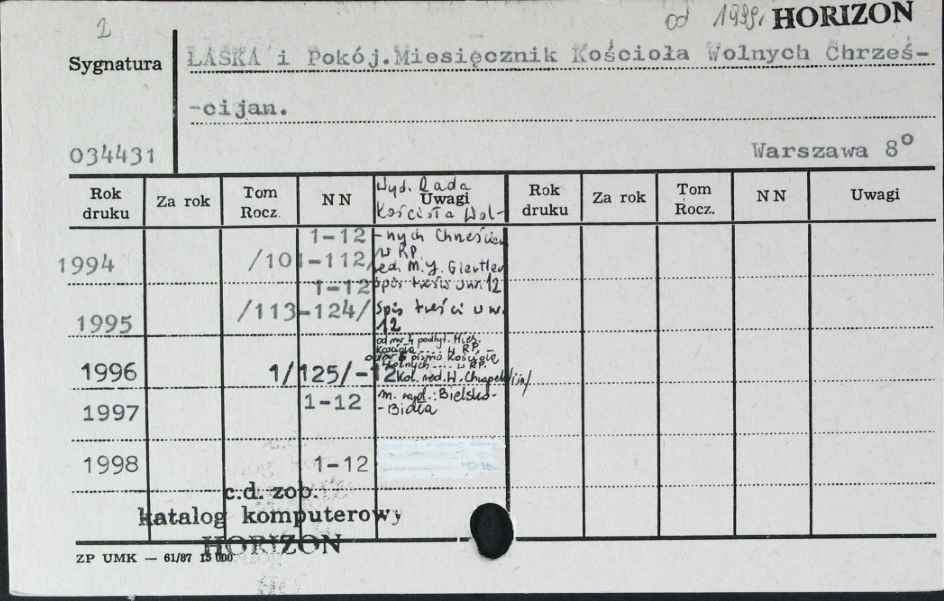 2
od 1999r. HORIZON
Sygnatura
ŁASKA i Pokój. Miesięcznik Kościoła Wolnych Chrześ-
-cijan.
034431
Warszawa 8°
Rok druku
Za rok
Tom Rocz.
NN
Uwagi
Rok druku
Za rok
Tom Rocz.
NN
Uwagi
Wyd. Rada
Kościoła Wol-
1994 /101-112/ 1-12 -nych Chrześcijan
w RP.
red. M.J.
Spis treści w nr. 12
1995 /113-124/ 1-12 Spis treści w nr.
12
od nr 4 podtyt. Mies.
Kościoła ..... w RP.
pismo Kościoła
Wolnych .... w RP.
1996 1/125/-12 Kol. red. H.
1997 1-12 m. wyd.: Bielsko-
-Biała
1998 1-12
c.d. zob.
katalog komputerowy
HORIZON
ZP UMK — 61/87 15 000